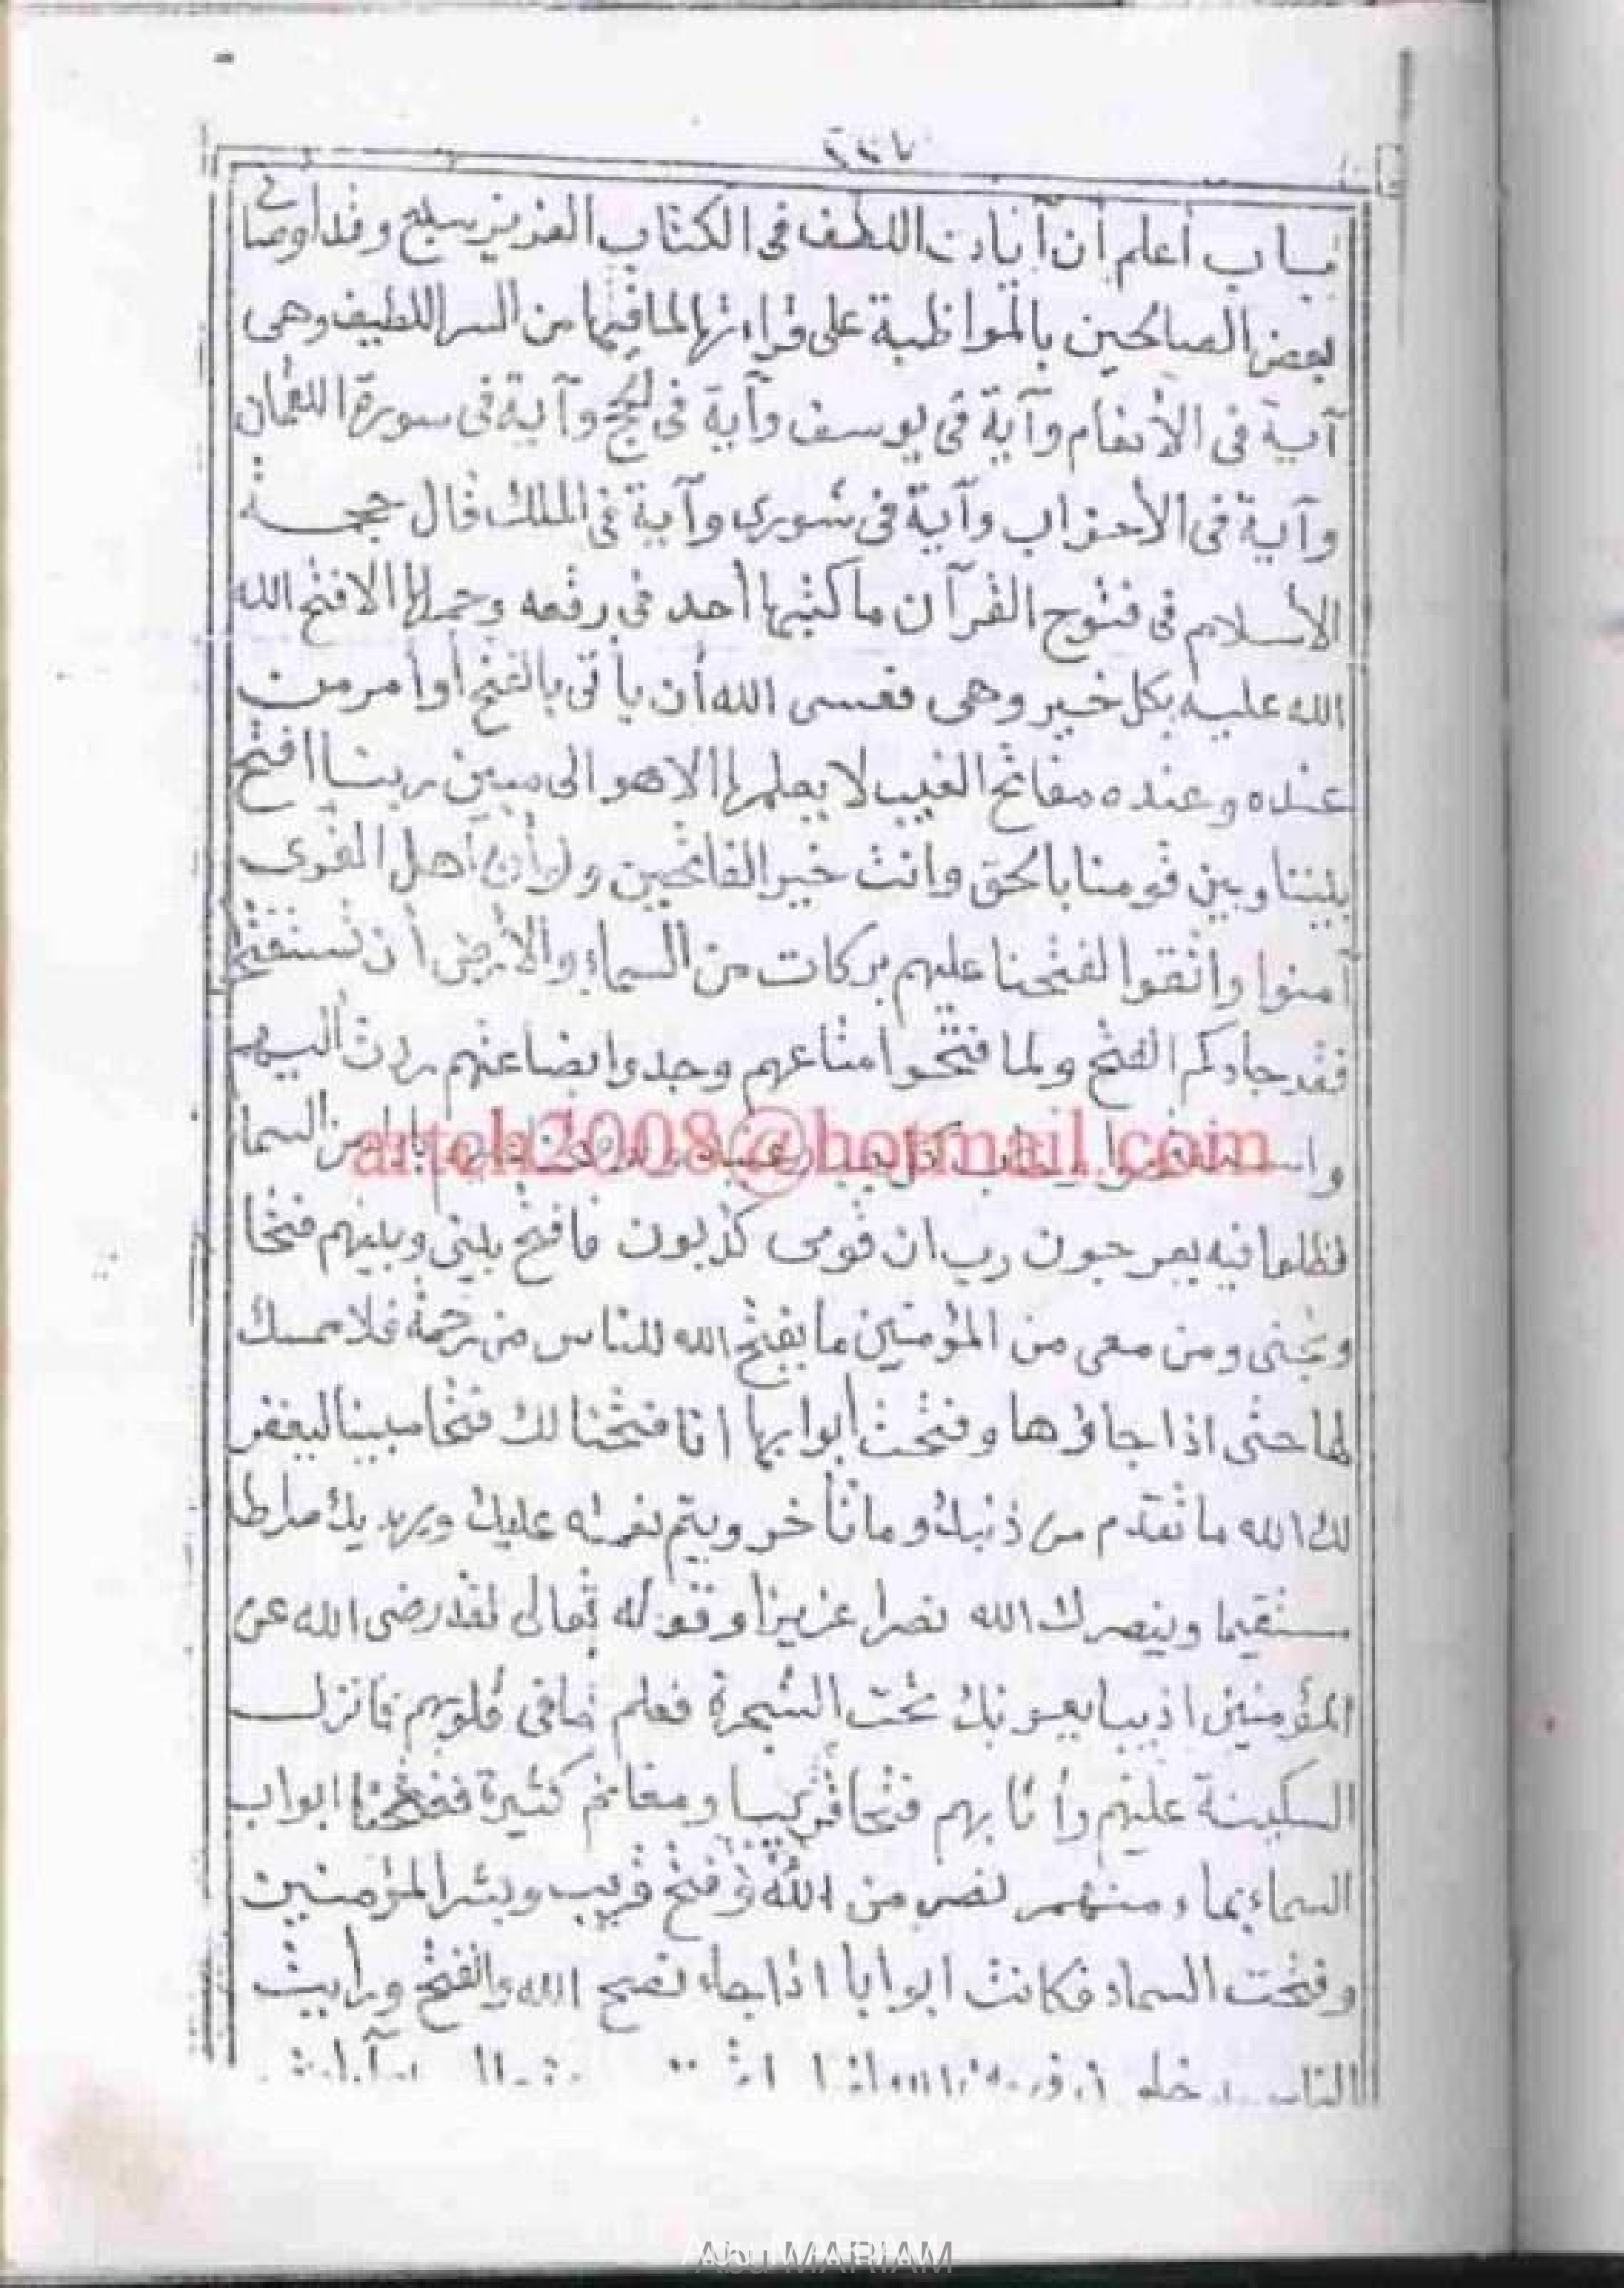 باب أعلم أن آيات اللطف فى الكتاب العزيز سبع وقد اوصى
بعض الصالحين بالمواظبة على قراءتها لما فيها من السر اللطيف وهى
آية فى الأنعام وآية فى يوسف وآية فى الحج وآية فى سورة اللقمان
وآية فى الأحزاب وآية فى شورى وآية فى الملك قال حجة
الأسلام فى فتوح القرآن ما كتبها أحد فى رقعه وحملها الا فتح الله
الله عليه بكل خير وهى فعسى الله أن يأتى بالفتح أوأمر من
عنده وعنده مفاتح الغيب لا يعلمها الا هو الى مبين ربنا افتح
بيننا وبين قومنا بالحق وانت خير الفاتحين ولو أن أهل القرى
آمنوا واتقوا لفتحنا عليهم بركات من السماء والأرض أن تستفتحوا
فقد جاءكم الفتح ولما فتحوا متاعهم وجدوا بضاعتهم ردت اليهم
واستفتحوا وخاب كل من السما
artch2008@hotmail.com
فظلوا فيه يعرجون رب ان قومى كذبون فافتح بينى وبينهم فتحا
ونجنى ومن معى من المؤمنين ما يفتح الله للناس من رحمة فلا ممسك
لها حتى اذا جاؤها وفتحت أبوابها انا فتحنا لك فتحا مبينا ليغفر
لك الله ما تقدم من ذنبك وما تأخر ويتم نعمته عليك ويهديك صراطا
مستقيما وينصرك الله نصرا عزيزا وقوله تعالى لقد رضى الله عن
المؤمنين اذ يبايعونك تحت الشجرة فعلم مافى قلوبهم فانزل
السكينة عليهم وأثابهم فتحا قريبا ومغانم كثيرة ففتحنا ابواب
السماء بماء منهمر نصر من الله وفتح قريب وبشر المؤمنين
وفتحت السماء فكانت ابوابا اذا جاء نصر الله والفتح ورأيت
الناس
Abu MARIAM